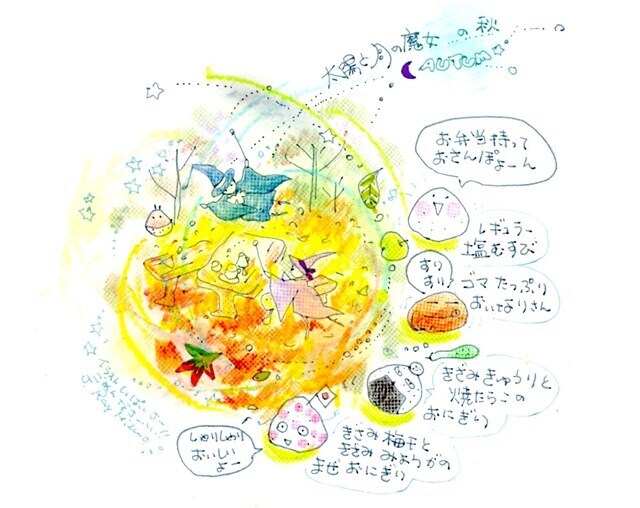 太陽と月の魔女の秋
AUTUM
お弁当持って
おさんぽよーん
レギュラー
塩むすび
すり
すり
ゴマたっぷり
おいなりさん
きざみきゅうりと
焼たらこの
おにぎり
きざみ梅干と
きざみみょうがの
まぜおにぎり
しゃりしゃり
おいしい
よー